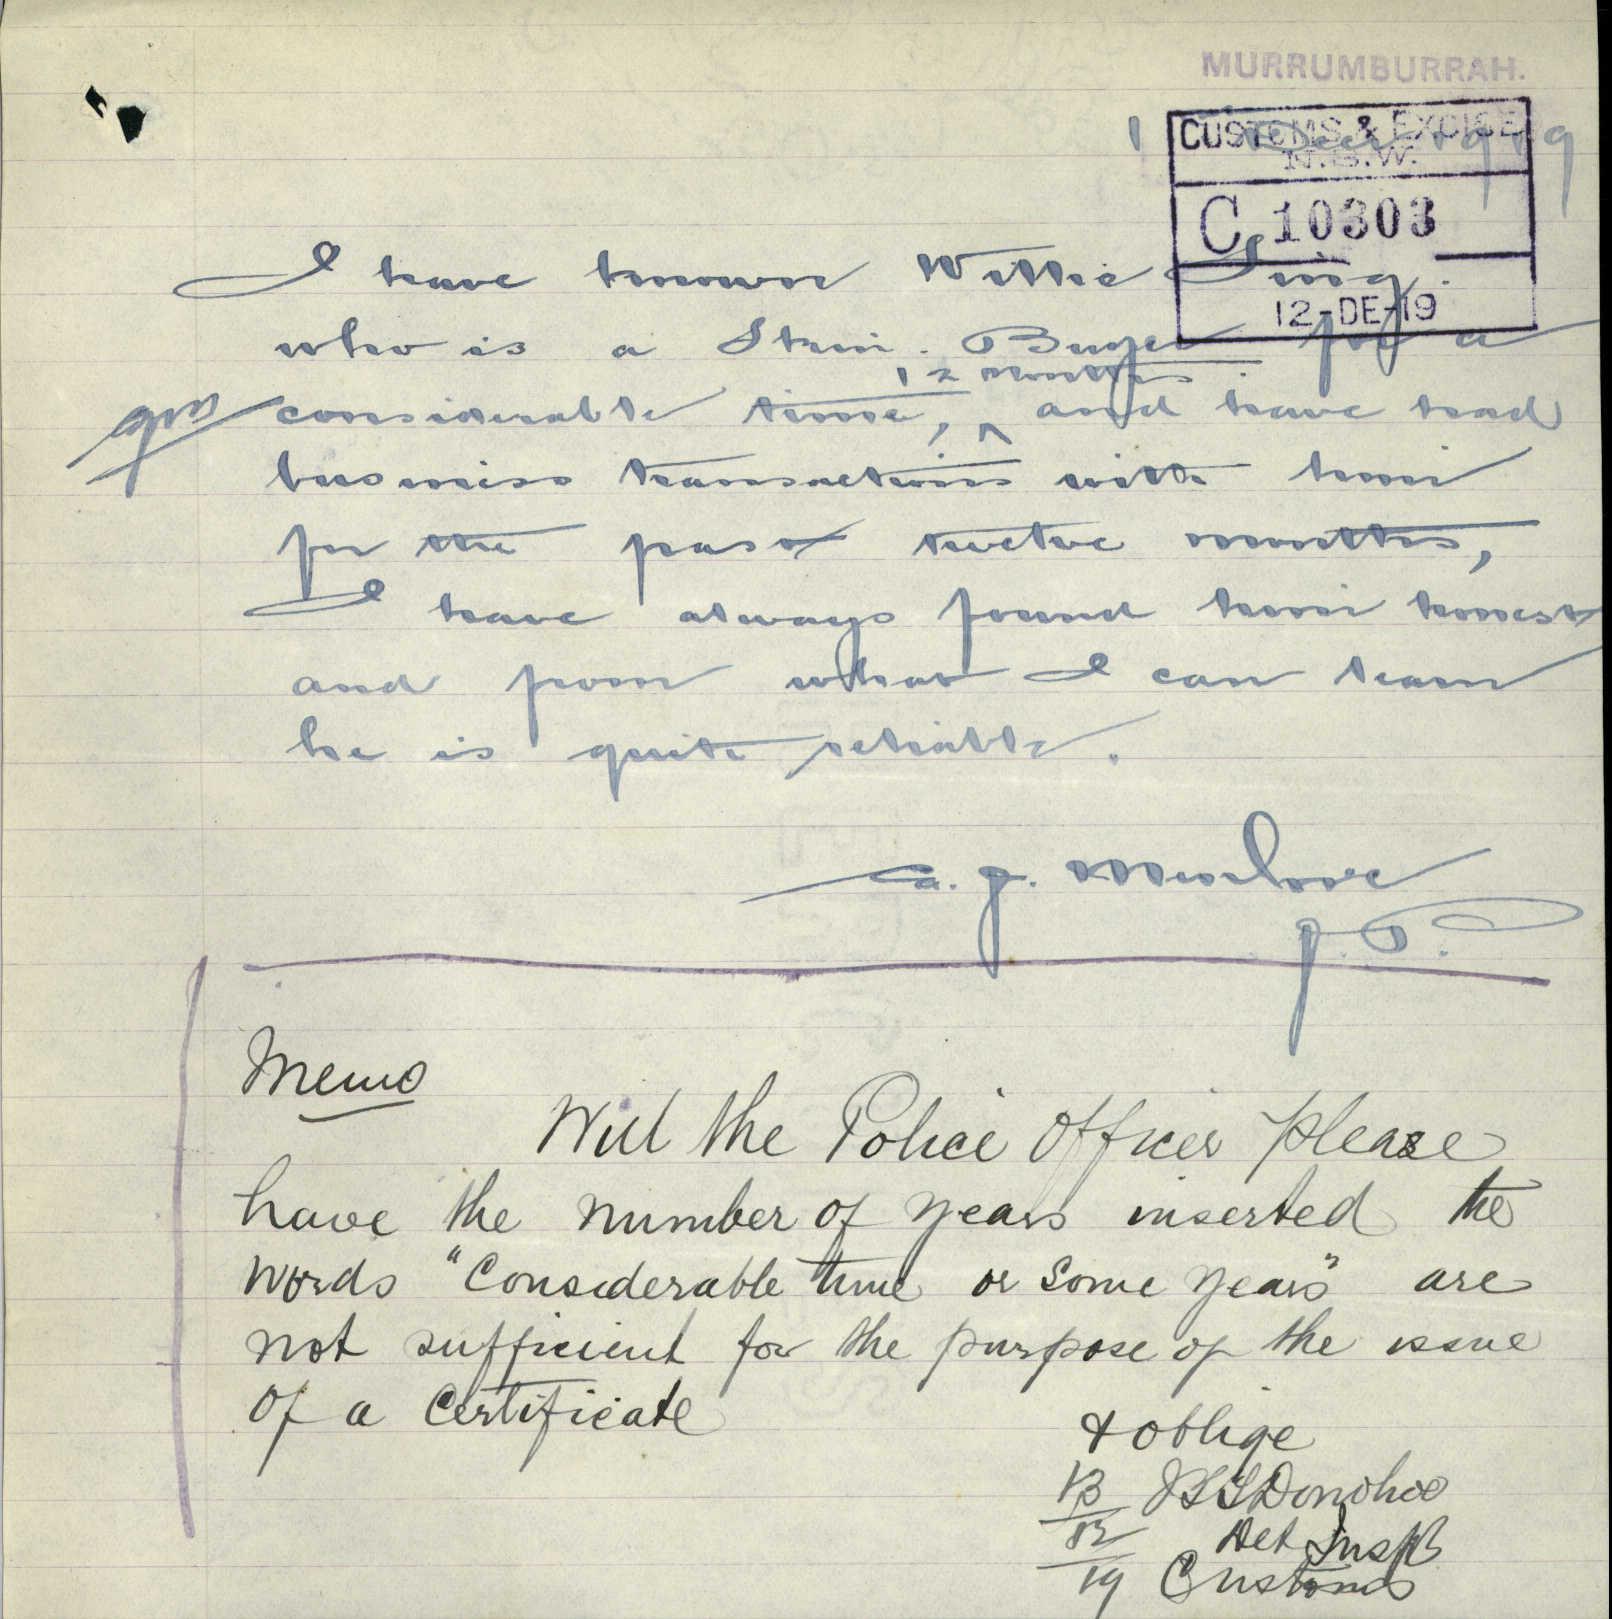 MURRUMBURRAH.
1 Decr 1919
CUSTOMS & EXCISE
N.S.W.
C 10303
12-DE-19
I have known Willie Sing.
who is a Skin. Buyer for a
12 months.
considerable time, ^ and have had
business transactions with him
for the past twelve months,
I have always found him honest
and from what I can learn
he is quite reliable.
A. J.
J. P.
Memo
Will the Police Officer please
have the number of years inserted the
words "Considerable time or some years" are
not sufficient for the purpose of the issue
of a Certificate
& oblige
13 Donohoe
12 Det Inspr
19 Customs